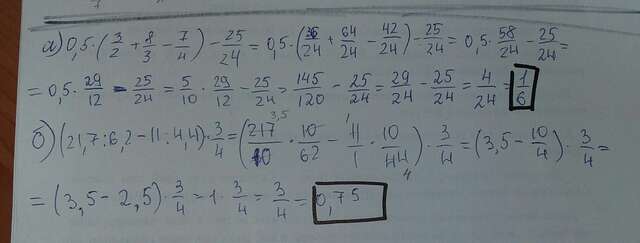 а) 0,5·(3/2 + 8/3 − 7/4) − 25/24 = 0,5·(36/24 + 64/24 − 42/24) − 25/24 = 0,5·58/24 − 25/24 =
= 0,5·29/12 − 25/24 = 5/10·29/12 − 25/24 = 145/120 − 25/24 = 29/24 − 25/24 = 4/24 = 1/6
б) (21,7:6,2 − 11:4,4)·3/4 = (217/10·10/62 − 11/1·10/44)·3/4 = (3,5 − 10/4)·3/4 =
= (3,5 − 2,5)·3/4 = 1·3/4 = 3/4 = 0,75